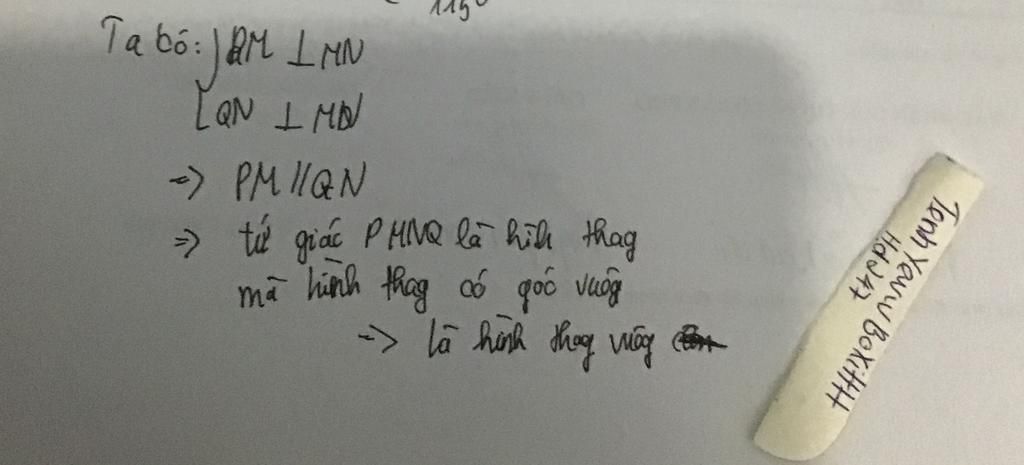 115°
Ta có: PM ⊥ MN
QN ⊥ MN
=> PM // QN
=> tứ giác PMNQ là hìh thag
mà hình thag có góc vuôg
=> là hình thag vuôg
TenhYouw BoxiHH
Hdj47